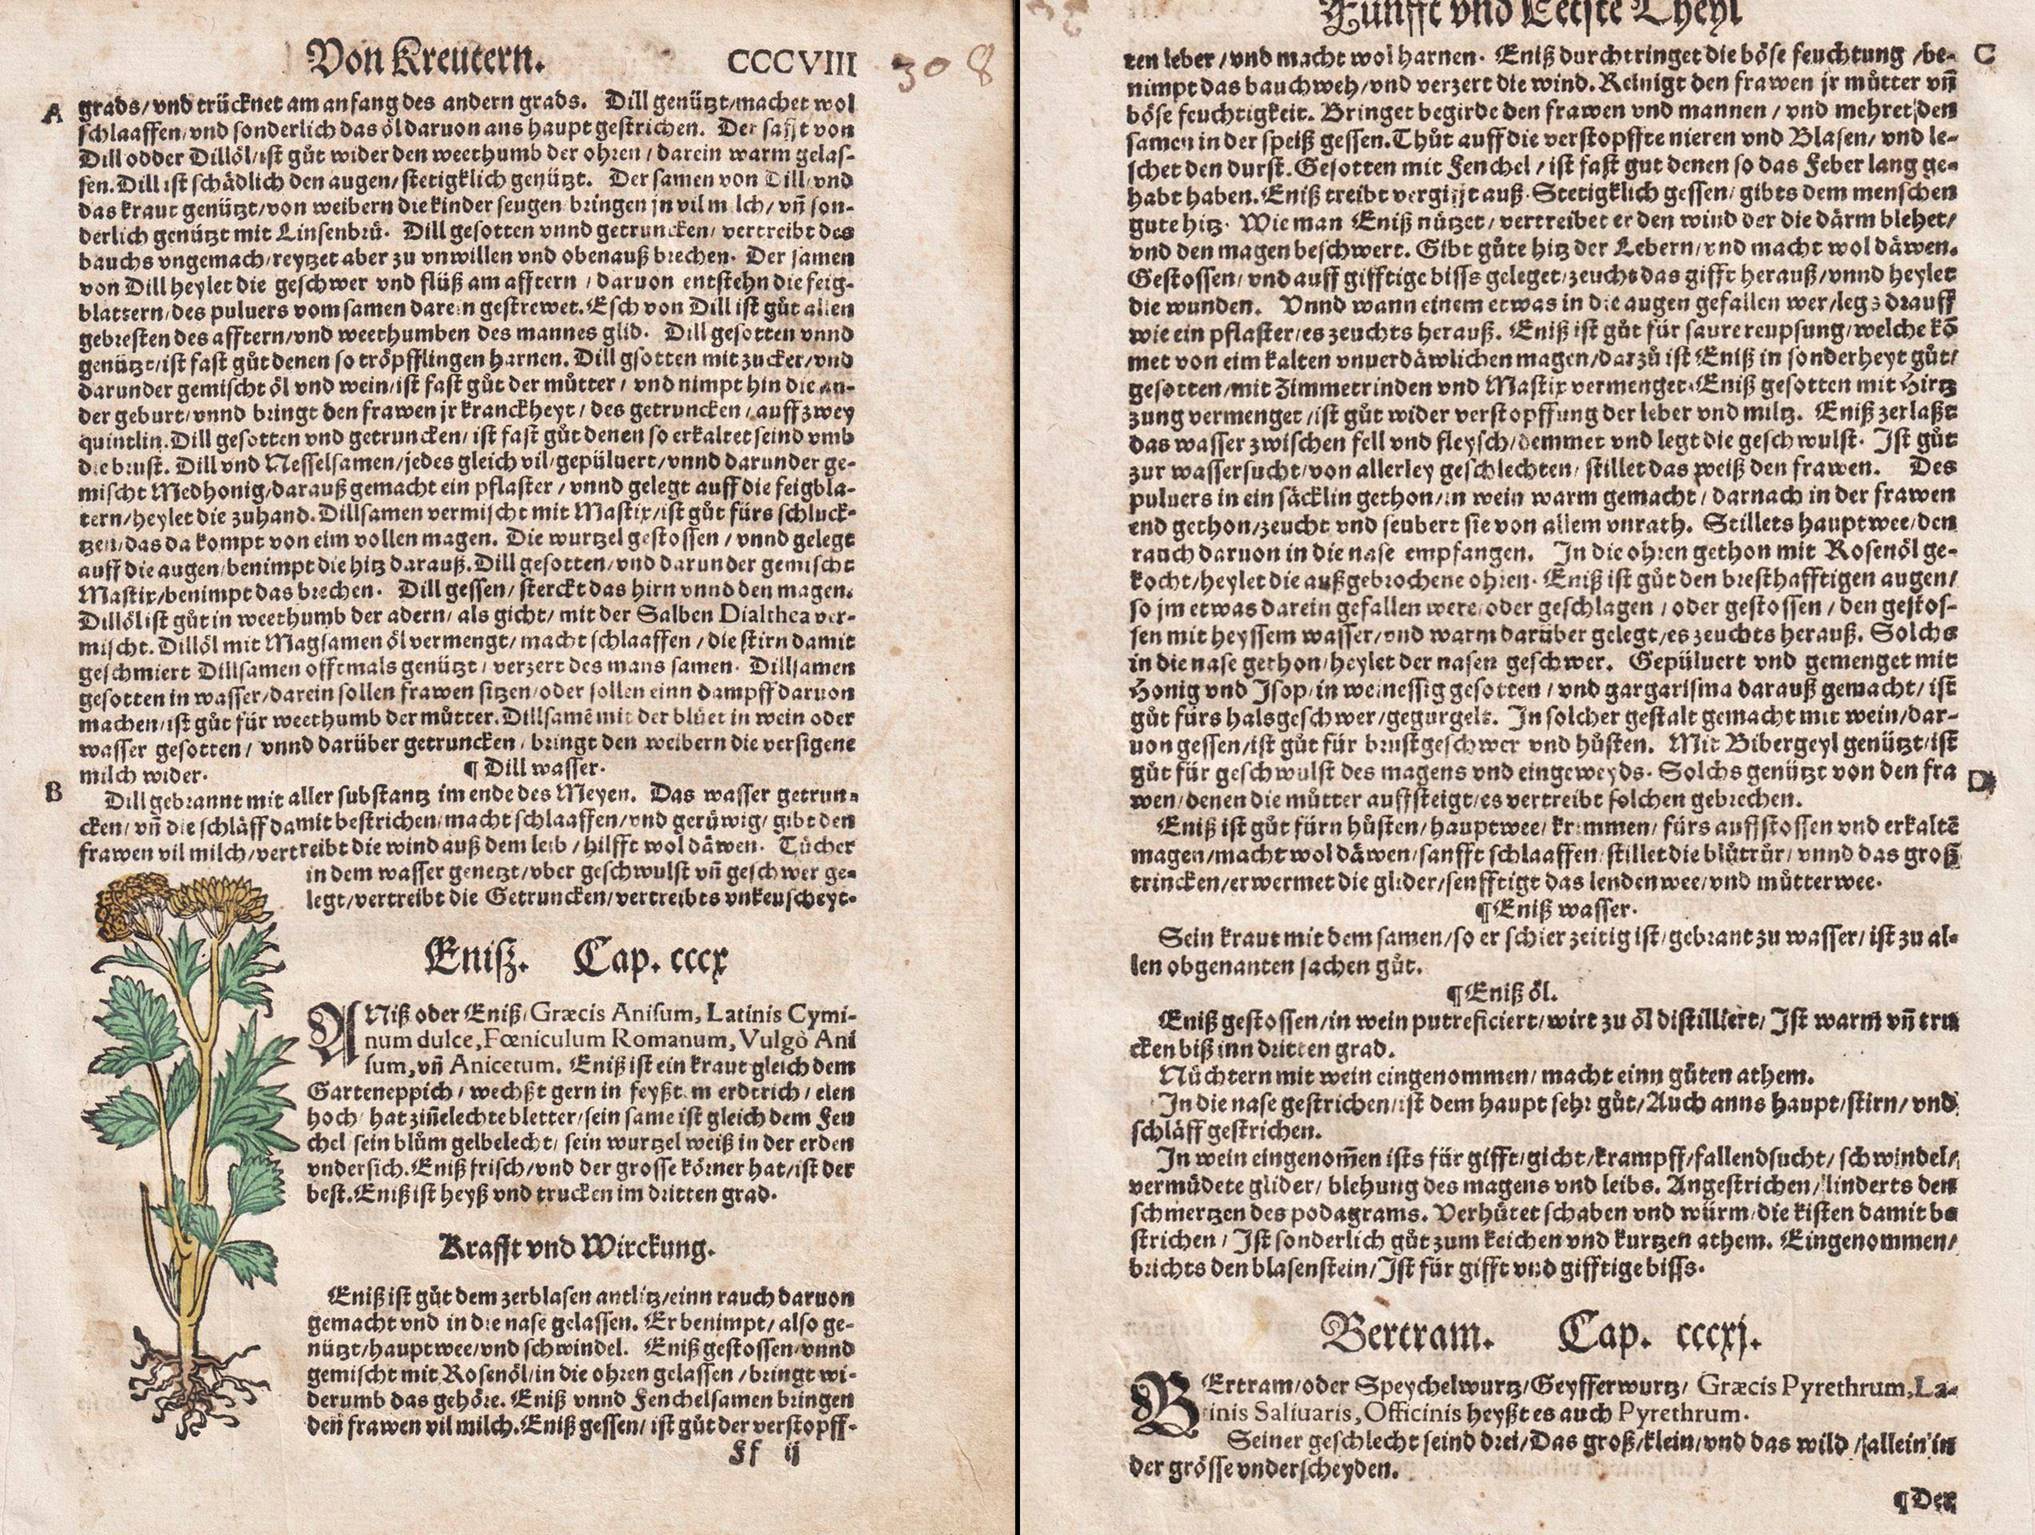 Von Kreutern. CCCVIII 308
A grads/vnd trücknet am anfang des andern grads. Dill genützt/machet wol
schlaaffen/vnd sonderlich das öl daruon ans haupt gestrichen. Der safft von
Dill odder Dillöl/ist gůt wider den weethumb der ohren/darein warm gelas-
sen. Dill ist schädlich den augen/stetigklich genützt. Der samen von Dill/vnd
das kraut genützt/von weibern die kinder seugen bringen jn vil milch/vñ son-
derlich genützt mit Linsenbrů. Dill gesotten vnnd getruncken/vertreibt des
bauchs vngemach/reytzet aber zu vnwillen vnd obenauß brechen. Der samen
von Dill heylet die geschwer vnd flüß am afftern/daruon entstehn die feig-
blattern/des puluers vom samen darein gestrewet. Esch von Dill ist gůt allen
gebresten des afftern/vnd weethumben des mannes glid. Dill gesotten vnnd
genützt/ist fast gůt denen so tröpfflingen harnen. Dill gsotten mit zucker/vnd
darunder gemischt öl vnd wein/ist fast gůt der můtter/vnd nimpt hin die an-
der geburt/vnnd bringt den frawen jr kranckheyt/des getruncken/auff zwey
quintlin. Dill gesotten vnd getruncken/ist fast gůt denen so erkaltet seind vmb
die brust. Dill vnd Nesselsamen/jedes gleich vil/gepüluert/vnnd darunder ge-
mischt Medhonig/darauß gemacht ein pflaster/vnnd gelegt auff die feigbla-
tern/heylet die zuhand. Dillsamen vermischt mit Mastix/ist gůt fürs schluck-
tzen/das da kompt von eim vollen magen. Die wurtzel gestossen/vnnd gelegt
auff die augen/benimpt die hitz darauß. Dill gesotten/vnd darunder gemischt
Mastix/benimpt das brechen. Dill gessen/sterckt das hirn vnnd den magen.
Dillöl ist gůt in weethumb der adern/als gicht/mit der Salben Dialthea ver-
mischt. Dillöl mit Magsamen öl vermengt/macht schlaaffen/die stirn damit
geschmiert Dillsamen offtmals genützt/verzert des mans samen. Dillsamen
gesotten in wasser/darein sollen frawen sitzen/oder sollen einn dampff daruon
machen/ist gůt für weethumb der můtter. Dillsamẽ mit der blůet in wein oder
wasser gesotten/vnnd darüber getruncken/bringt den weibern die versigene
milch wider. ¶ Dill wasser.
B Dill gebrannt mit aller substantz im ende des Meyen. Das wasser getrun-
cken/vñ die schläff damit bestrichen/macht schlaaffen/vnd gerüwig/gibt den
frawen vil milch/vertreibt die wind auß dem leib/hilfft wol däwen. Tücher
in dem wasser genetzt/vber geschwulst vñ geschwer ge-
legt/vertreibt die Getruncken/vertreibts vnkeuscheyt.
Eniß. Cap. cccx
ANiß oder Eniß/Græcis Anisum, Latinis Cymi-
num dulce, Fœniculum Romanum, Vulgò Ani
sum, vñ Anicetum. Eniß ist ein kraut gleich dem
Garteneppich/wechßt gern in feyßtem erdtrich/elen
hoch/hat ziñelechte bletter/sein same ist gleich dem Fen
chel sein blům gelbelecht/sein wurtzel weiß in der erden
vndersich. Eniß frisch/vnd der grosse körner hat/ist der
best. Eniß ist heyß vnd trucken im dritten grad.
Krafft vnd Wirckung.
Eniß ist gůt dem zerblasen antlitz/einn rauch daruon
gemacht vnd in die nase gelassen. Er benimpt/also ge-
nützt/hauptwee/vnd schwindel. Eniß gestossen/vnnd
gemischt mit Rosenöl/in die ohren gelassen/bringt wi-
derumb das gehöre. Eniß vnnd Fenchelsamen bringen
den frawen vil milch. Eniß gessen/ist gůt der verstopff-
Ff ij
Fünfft vnd Letste Theyl
ten leber/vnd macht wol harnen. Eniß durchtringet die böse feuchtung/be- C
nimpt das bauchweh/vnd verzert die wind. Reinigt den frawen jr můtter vñ
böse feuchtigkeit. Bringet begirde den frawen vnd mannen/vnd mehret den
samen in der speiß gessen. Thůt auff die verstopffte nieren vnd Blasen/vnd le-
schet den durst. Gesotten mit Fenchel/ist fast gut denen so das Feber lang ge-
habt haben. Eniß treibt vergifft auß. Stetigklich gessen/gibts dem menschen
gute hitz. Wie man Eniß nützet/vertreibet er den wind der die därm blehet/
vnd den magen beschwert. Gibt gůte hitz der Lebern/vnd macht wol däwen.
Gestossen/vnd auff gifftige biss geleget/zeucht das gifft herauß/vnnd heylet
die wunden. Vnnd wann einem etwas in die augen gefallen wer/legs drauff
wie ein pflaster/es zeuchts herauß. Eniß ist gůt für saure reupsung/welche kõ
met von eim kalten vnuerdäwlichen magen/darzů ist Eniß in sonderheyt gůt/
gesotten/mit Zimmetrinden vnd Mastix vermenget. Eniß gesotten mit Hirtz
zung vermenget/ist gůt wider verstopffung der leber vnd miltz. Eniß zerlaßt
das wasser zwischen fell vnd fleysch/demmet vnd legt die geschwulst. Ist gůt
zur wassersucht/von allerley geschlechten/stillet das weiß den frawen. Des
puluers in ein säcklin gethon/in wein warm gemacht/darnach in der frawen
end gethon/zeucht vnd seubert sie von allem vnrath. Stillets hauptwee/den
rauch daruon in die nase empfangen. In die ohren gethon mit Rosenöl ge-
kocht/heylet die außgebrochene ohren. Eniß ist gůt den bresthafftigen augen/
so jm etwas darein gefallen were/oder geschlagen/oder gestossen/den gestos-
sen mit heyssem wasser/vnd warm darüber gelegt/es zeuchts herauß. Solchs
in die nase gethon/heylet der nasen geschwer. Gepüluert vnd gemenget mit
Honig vnd Isop/in weinessig gesotten/vnd gargarisma darauß gemacht/ist
gůt fürs halsgeschwer/gegurgelt. In solcher gestalt gemacht mit wein/dar-
uon gessen/ist gůt für brustgeschwer vnd hůsten. Mit Bibergeyl genützt/ist
gůt für geschwulst des magens vnd eingeweyds. Solchs genützt von den fra D
wen/denen die můtter auffsteigt/es vertreibt solchen gebrechen.
Eniß ist gůt fürn hůsten/hauptwee/krimmen/fürs auffstossen vnd erkaltẽ
magen/macht wol däwen/sanfft schlaaffen/stillet die blůtrůr/vnnd das groß
trincken/erwermet die glider/senfftigt das lendenwee/vnd můtterwee.
¶ Eniß wasser.
Sein kraut mit dem samen/so er schier zeitig ist/gebrant zu wasser/ist zu al-
len obgenanten sachen gůt.
¶ Eniß öl.
Eniß gestossen/in wein putreficiert/wirt zu öl distilliert/Ist warm vñ tru
cken biß inn dritten grad.
Nüchtern mit wein eingenommen/macht einn gůten athem.
In die nase gestrichen/ist dem haupt sehr gůt/Auch anns haupt/stirn/vnd
schläff gestrichen.
In wein eingenom̃en ists für gifft/gicht/krampff/fallendsucht/schwindel/
vermüdete glider/blehung des magens vnd leibs. Angestrichen/linderts den
schmertzen des podagrams. Verhütet schaben vnd würm/die kisten damit be
strichen/Ist sonderlich gůt zum keichen vnd kurtzen athem. Eingenommen/
brichts den blasenstein/Ist für gifft vnd gifftige biss.
Bertram. Cap. cccxj.
BErtram/oder Speychelwurtz/Geyfferwurtz/Græcis Pyrethrum, La-
tinis Saliuaris, Officinis heyßt es auch Pyrethrum.
Seiner geschlecht seind drei/Das groß/klein/vnd das wild/allein in
der grösse vnderscheyden.
¶ Der